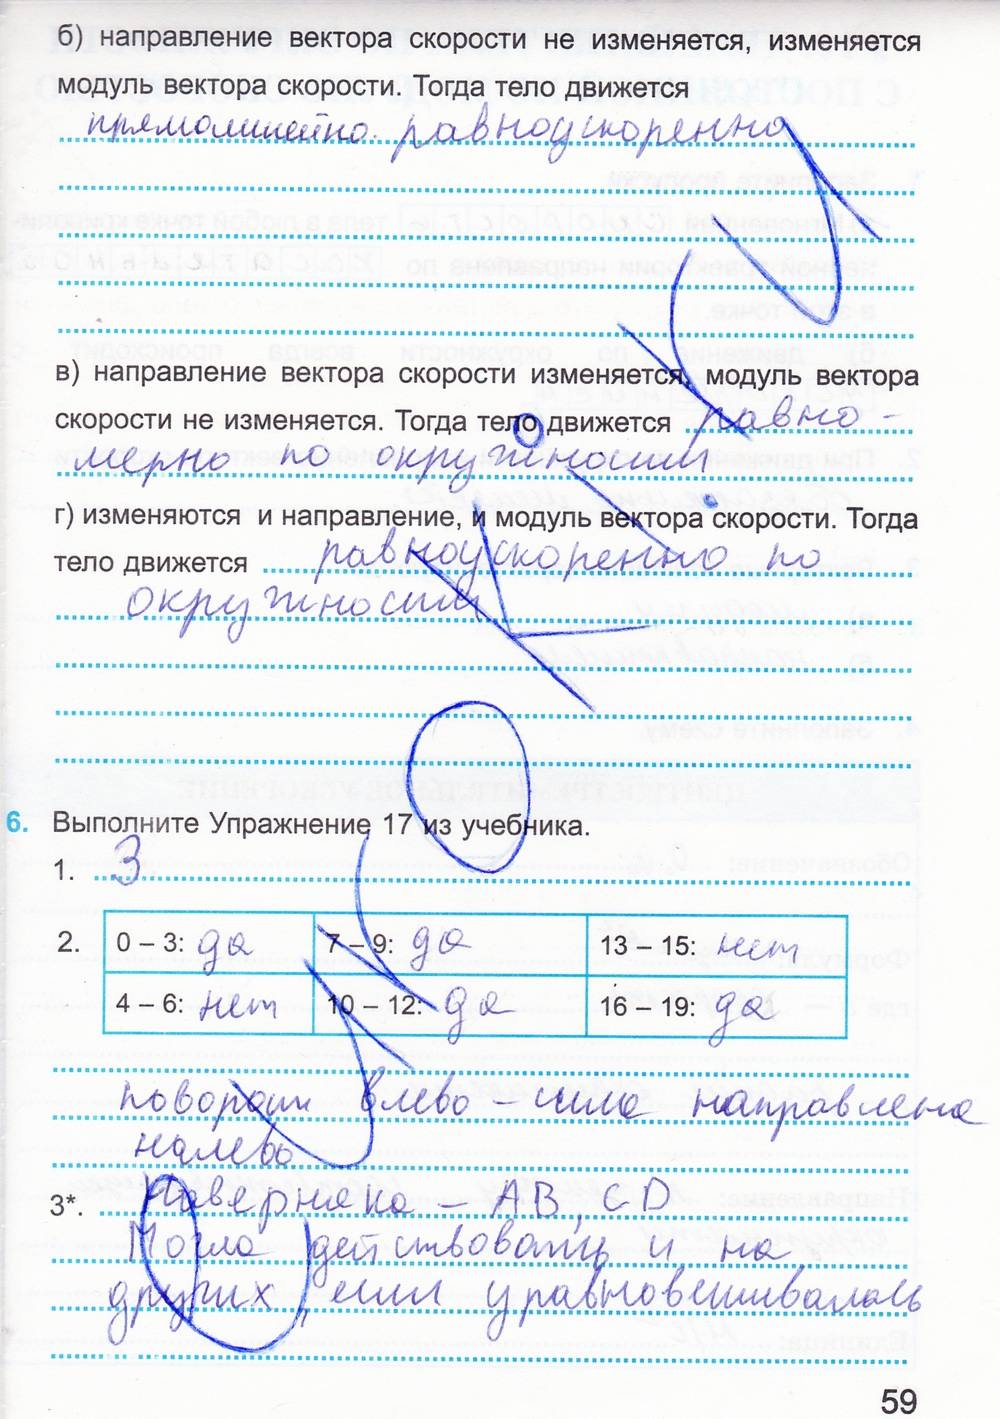 б) направление вектора скорости не изменяется, изменяется
модуль вектора скорости. Тогда тело движется
прямолинейно равноускоренно
в) направление вектора скорости изменяется, модуль вектора
скорости не изменяется. Тогда тело движется равно-
мерно по окружности
г) изменяются и направление, и модуль вектора скорости. Тогда
тело движется равноускоренно по
окружности
6. Выполните Упражнение 17 из учебника.
1. 3
2. 0 – 3: да 7 – 9: да 13 – 15: нет
4 – 6: нет 10 – 12: да 16 – 19: да
поворот влево – сила направлена
налево
3*. Наверняка – AB, CD
Могла действовать и на
других, если уравновешивалась
59